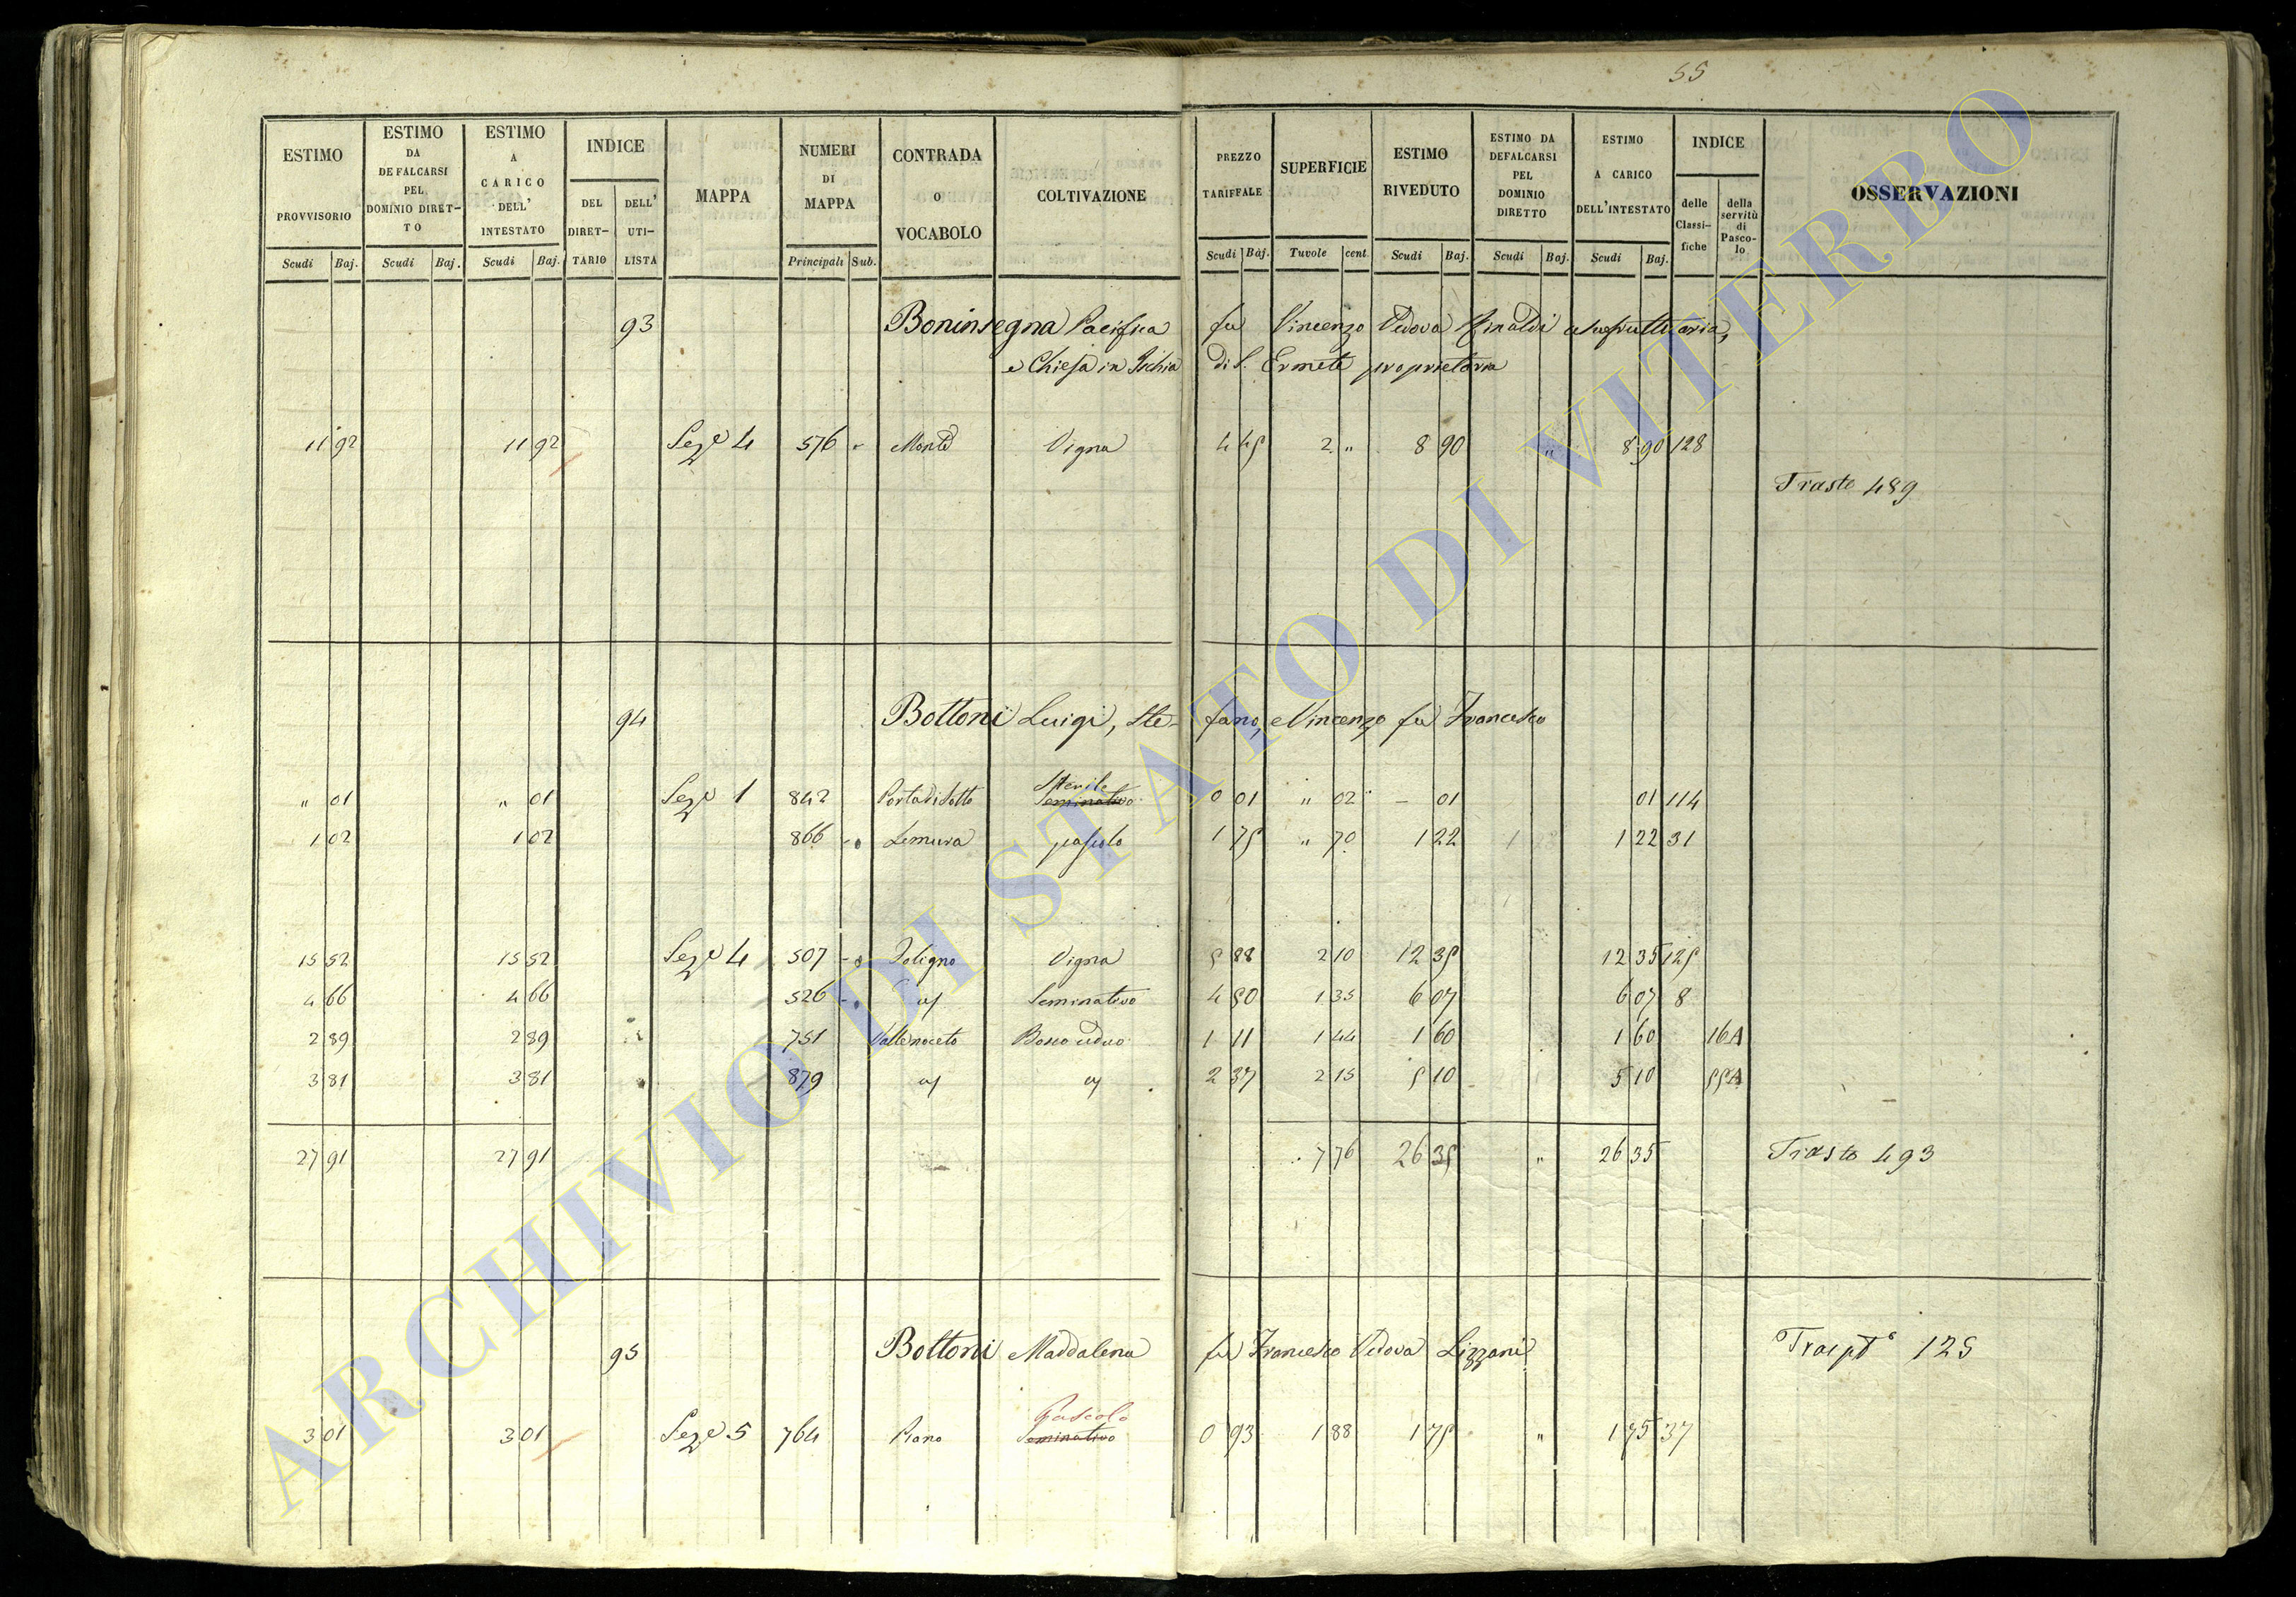 55
ESTIMO PROVVISORIO Scudi Baj.
ESTIMO DA DEFALCARSI PEL DOMINIO DIRET-TO Scudi Baj.
ESTIMO A CARICO DELL' INTESTATO Scudi Baj.
INDICE DEL DIRET-TARIO DELL' UTI-LISTA
MAPPA
NUMERI DI MAPPA Principali Sub.
CONTRADA O VOCABOLO
COLTIVAZIONE
PREZZO TARIFFALE Scudi Baj.
SUPERFICIE Tavole cent.
ESTIMO RIVEDUTO Scudi Baj.
ESTIMO DA DEFALCARSI PEL DOMINIO DIRETTO Scudi Baj.
ESTIMO A CARICO DELL'INTESTATO Scudi Baj.
INDICE delle Classi-fiche della servitù di Pasco-lo
OSSERVAZIONI
93 Boninsegna Pacifica fu Vincenzo Vedova Rinaldi usufruttuaria,
e Chiesa in Ischia di S. Ermete proprietaria
11 92 11 92 Sez.e 4 576 Monte Vigna 4 45 2 " 8 90 " 8 90 128
Trasto 489
94 Bottoni Luigi, Ste- fano, e Vincenzo fu Francesco
" 01 " 01 Sez.e 1 842 Porta di Sotto Sterile Seminativo 0 01 " 02 - 01 01 114
1 02 1 02 866 Lemura pascolo 1 75 " 70 1 22 1 22 31
15 52 15 52 Sez.e 4 507 Foligno Vigna 5 88 2 10 12 35 12 35 125
4 66 4 66 526 Seminativo 4 50 1 35 6 07 6 07 8
2 89 2 89 751 Vallenoceto Bosco ceduo 1 11 1 44 1 60 1 60 16A
3 81 3 81 879 2 37 2 15 5 10 5 10 55A
27 91 27 91 7 76 26 35 " 26 35 Trasto 493
95 Bottoni Maddalena fu Francesco Vedova Lizzani 125
3 01 3 01 Sez.e 5 764 Piano Pascolo Seminativo 0 93 1 88 1 75 " 1 75 37
ARCHIVIO DI STATO DI VITERBO